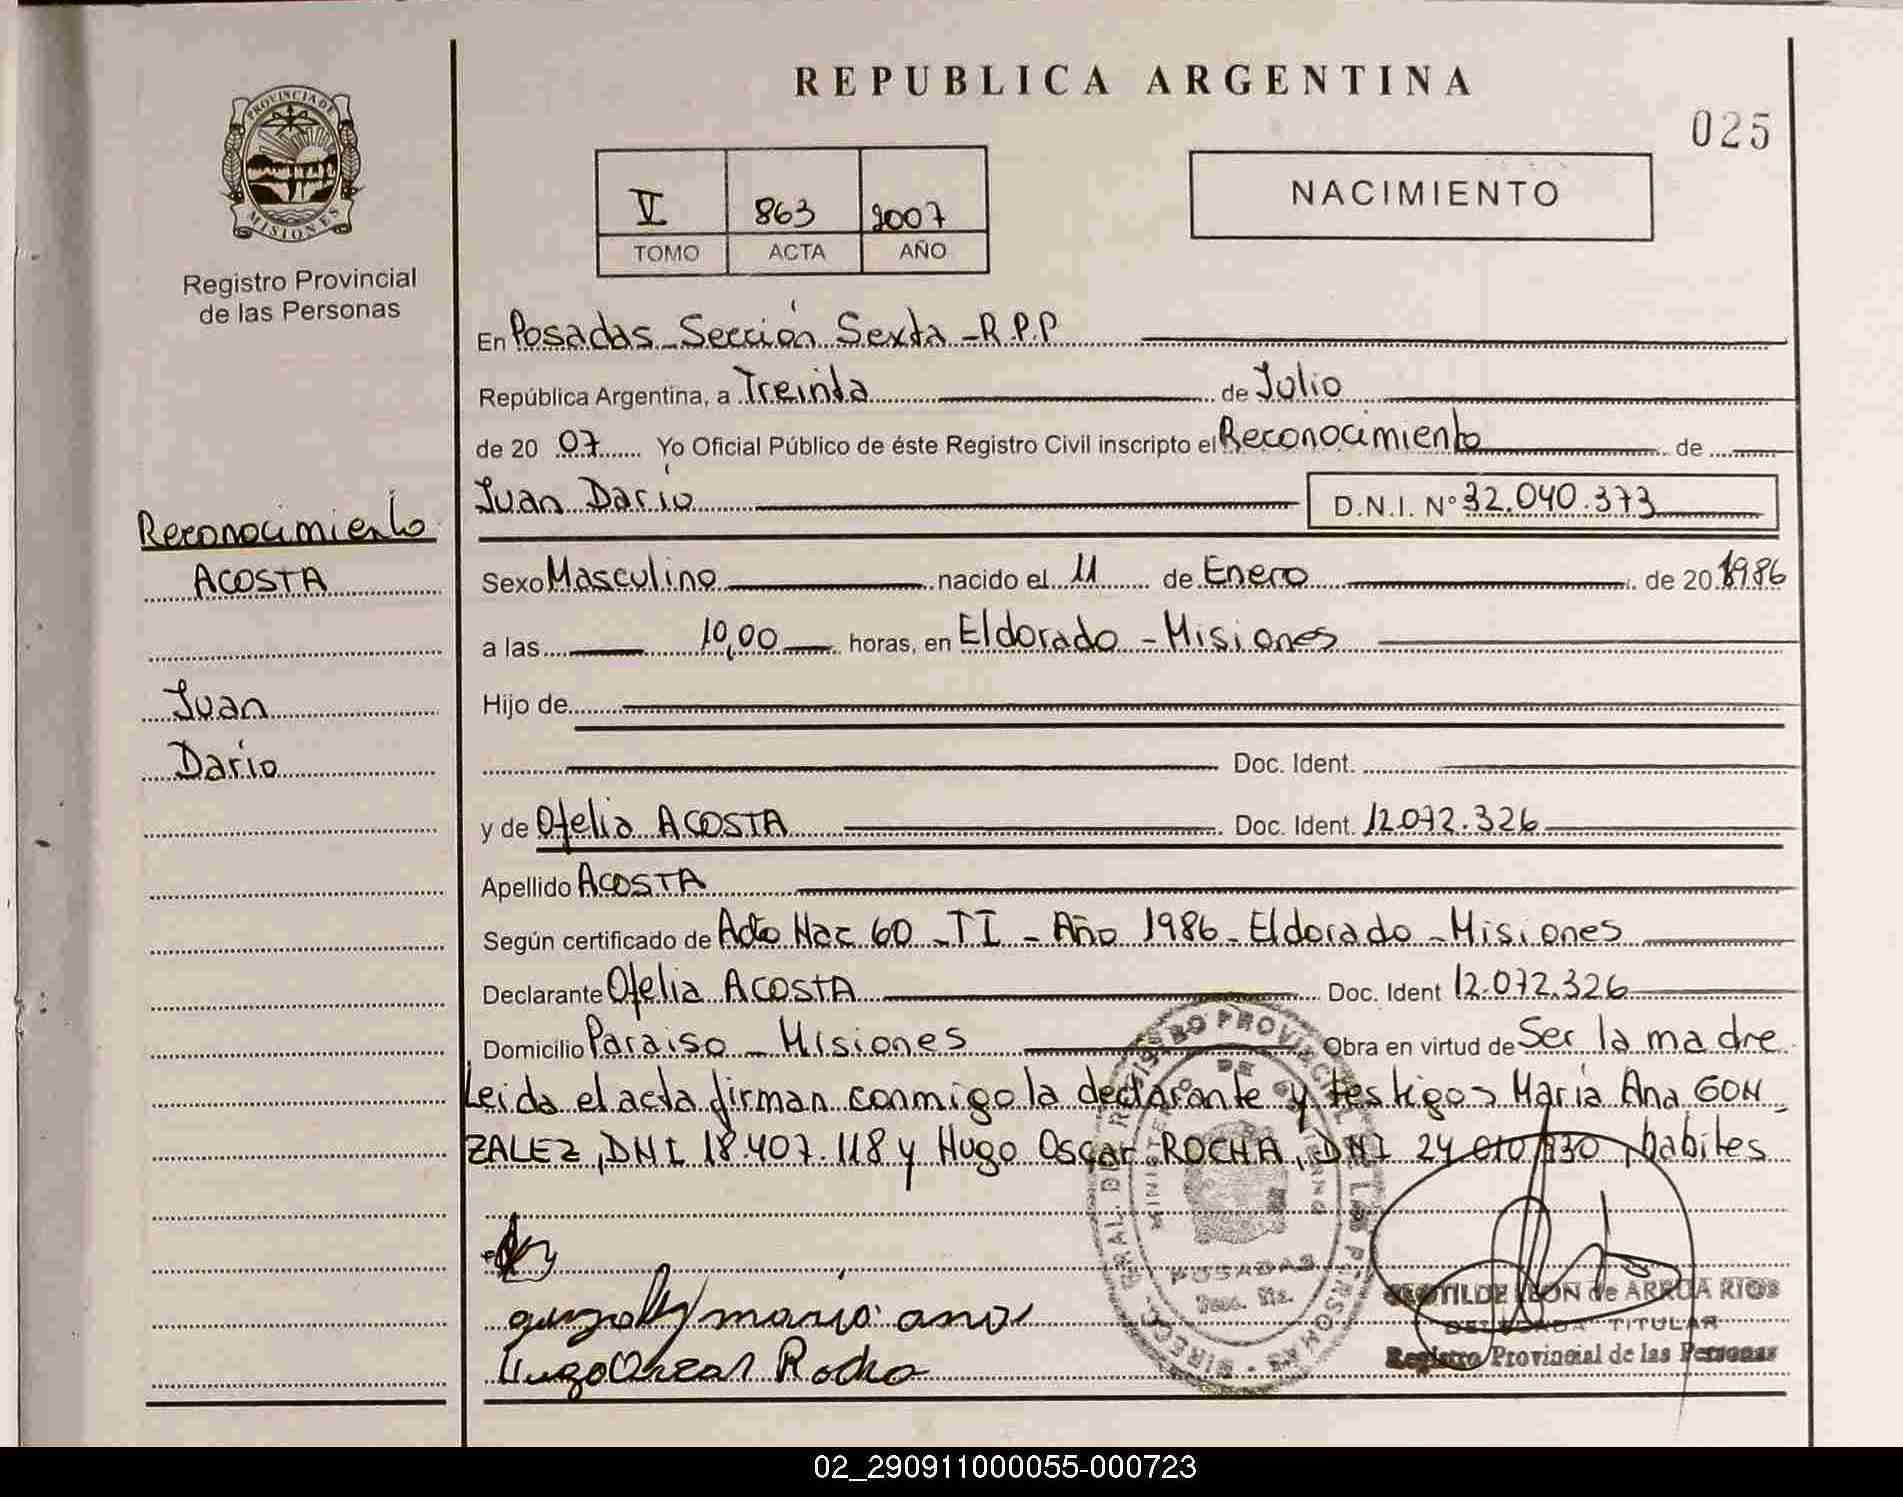 REPUBLICA ARGENTINA
025
PROVINCIA DE
MISIONES
Registro Provincial
de las Personas
V 863 2007
TOMO ACTA AÑO
NACIMIENTO
En Posadas - Sección Sexta - R.P.P
República Argentina, a Treinta de Julio
de 20 07 Yo Oficial Público de éste Registro Civil inscripto el Reconocimiento de
Juan Dario D.N.I. N° 32.040.373
Reconocimiento
ACOSTA
Juan
Dario
Sexo Masculino nacido el 11 de Enero de 20 1986
a las 10,00 horas, en Eldorado - Misiones
Hijo de
Doc. Ident.
y de Ofelia ACOSTA Doc. Ident. 12.072.326
Apellido ACOSTA
Según certificado de Acta Nac 60 - TI - Año 1986 - Eldorado - Misiones
Declarante Ofelia ACOSTA Doc. Ident 12.072.326
Domicilio Paraiso - Misiones Obra en virtud de Ser la madre
Leida el acta firman conmigo la declarante y testigos María Ana GON
ZALEZ, DNI 18.407.118 y Hugo Oscar ROCHA, DNI 24 010 330, habiles
maria ana
Hugo Oscar Rocha
POSADAS
LEON de ARRUA RIOS
TITULAR
Registro Provincial de las Personas
02_290911000055-000723